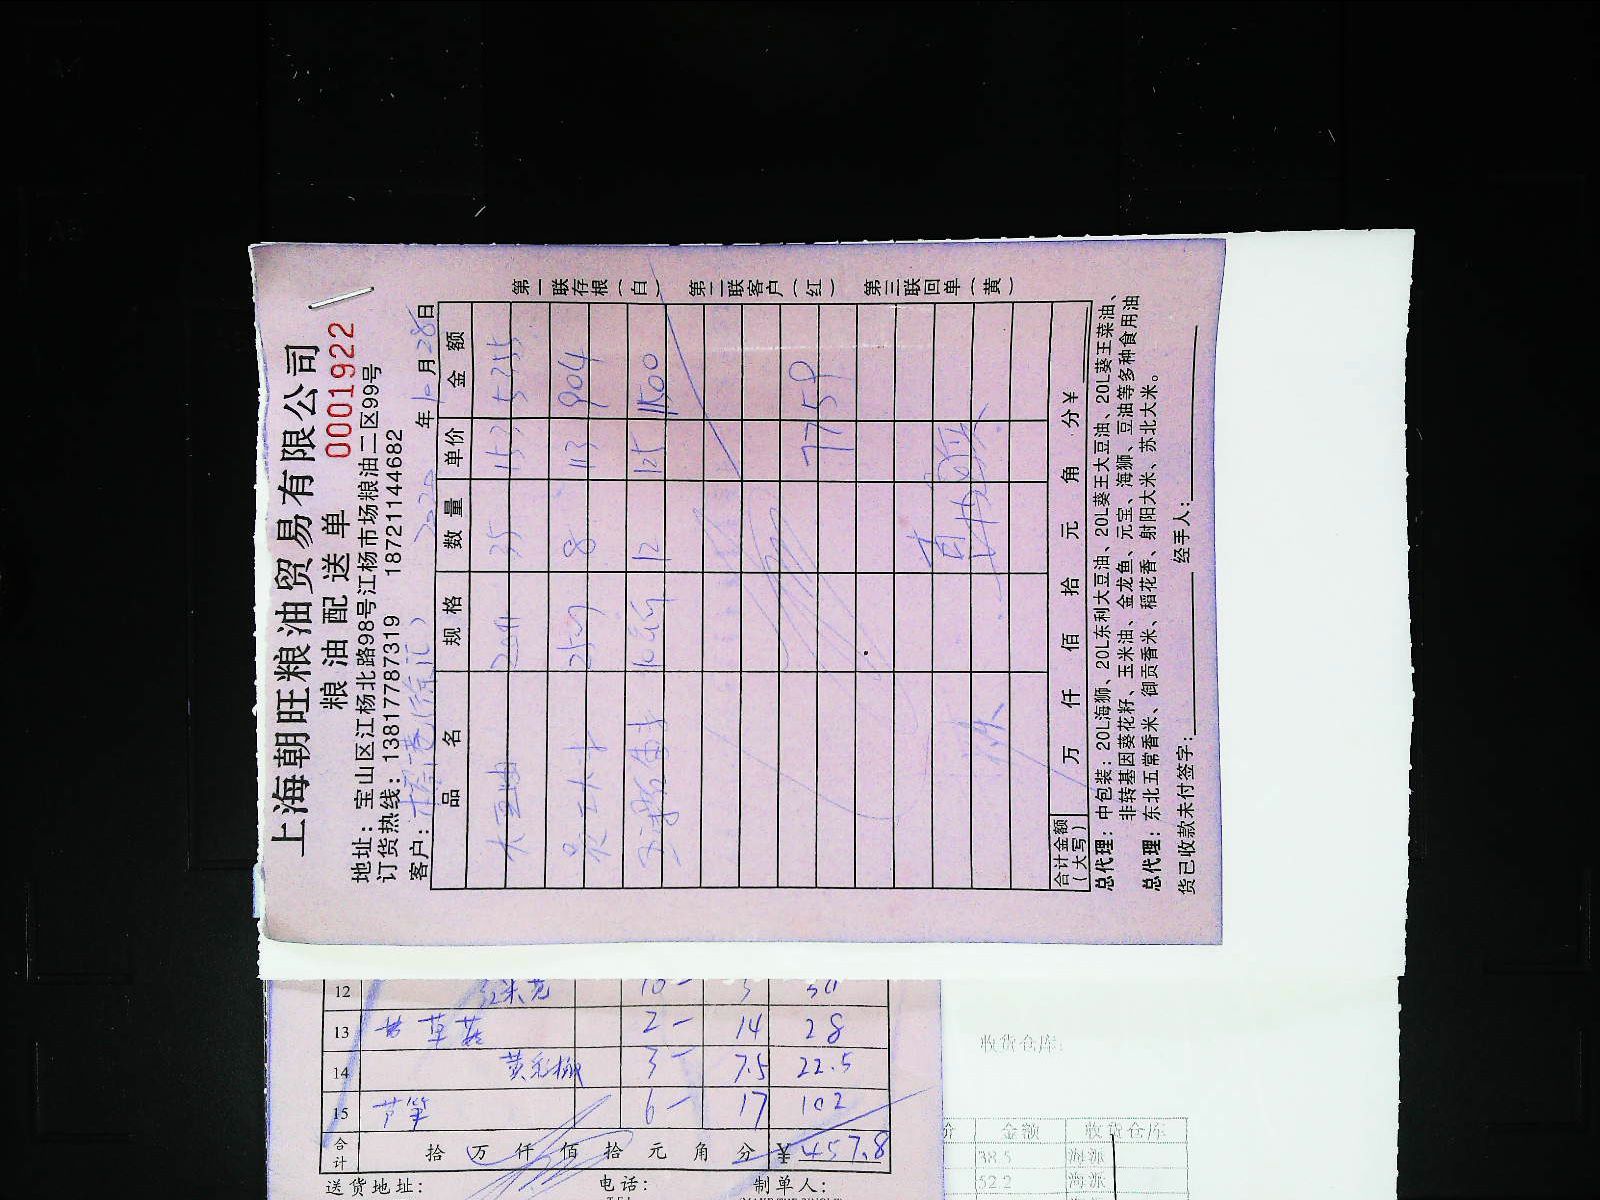 上海朝旺粮油贸易有限公司
粮油配送单 0001922
地址：宝山区江杨北路98号江杨市场粮油二区99号
订货热线：13817787319 18721144682
客户： 2020年10月28日
品名 规格 数量 单价 金额
大豆油 35 153 5355
大米 8 113 904
12 125 1500
7759
合计金额（大写） 万 仟 佰 拾 元 角 分 ￥
总代理：中包装：20L海狮、20L东利大豆油、20L葵王大豆油、20L葵王菜油、
非转基因葵花籽、玉米油、金龙鱼、元宝、海狮、豆油等多种食用油
总代理：东北五常香米、御贡香米、稻花香、射阳大米、苏北大米。
货已收款未付签字： 经手人：
第一联存根（白） 第二联客户（红） 第三联回单（黄）
12 10－ 5 50
13 草菇 2－ 14 28
14 3－ 7.5 22.5
15 芦笋 6－ 17 102
合计 拾 万 仟 佰 拾 元 角 分 ￥457.8
送货地址： 电话： 制单人：
收货仓库：
价 金额 收货仓库
38.5 海派
52.2 海派